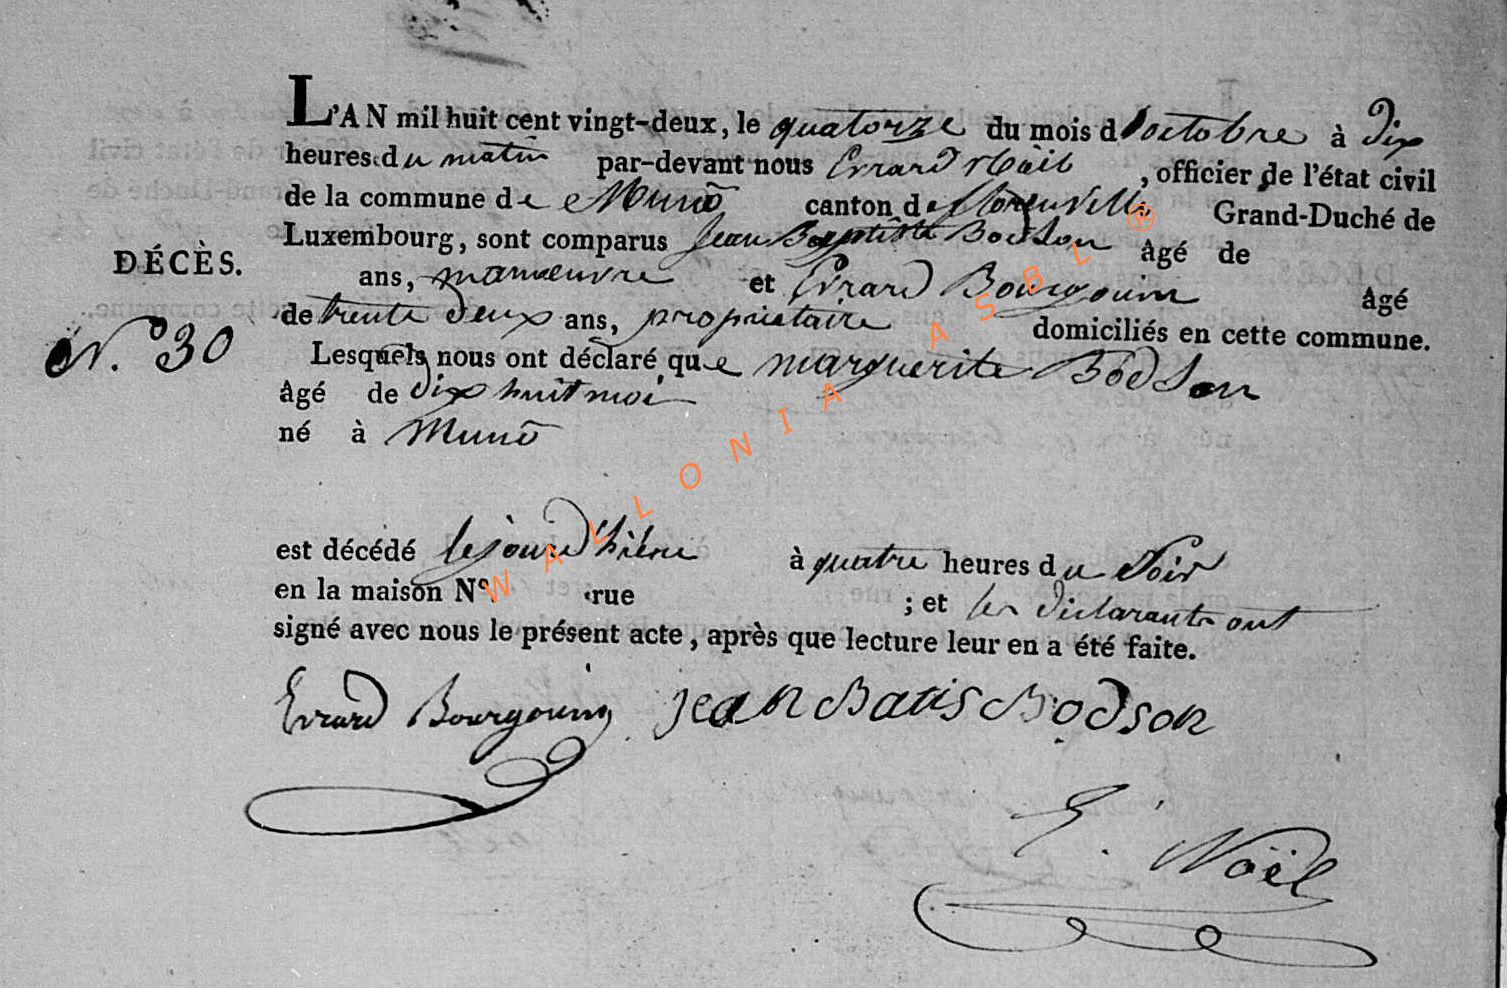 L'AN mil huit cent vingt-deux, le quatorze du mois d'octobre à dix
heures du matin par-devant nous Evrard Noël, officier de l'état civil
de la commune de Muno canton de florenville Grand-Duché de
Luxembourg, sont comparus Jean Baptiste Bodson âgé de
DÉCÈS.
ans, manœuvre et Evrard Bourgouin âgé
de trente deux ans, propriétaire domiciliés en cette commune.
N.º 30
Lesquels nous ont déclaré que marguerite Bodson
âgé de dix huit moi
né à Muno
est décédé le jour d'hiere à quatre heures du Soir
en la maison Nº rue ; et les déclarants ont
signé avec nous le présent acte, après que lecture leur en a été faite.
Evrard Bourgouin jean Batis Bodson
E. Noël
WALLONIA ASBL ®